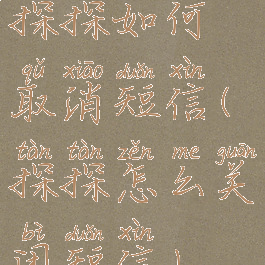 探探如何
qǔ xiāo duǎn xìn
取消短信(
tàn tàn zěn me guān
探探怎么关
bì duǎn xìn
闭短信)